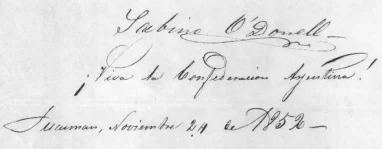 Sabino O'Donell
¡Viva la Confederacion Argentina!
Tucuman, Noviembre 24 de 1852